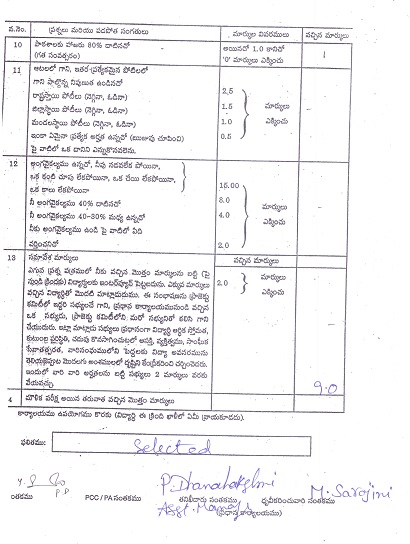 వ.నెం. ప్రశ్నలు మరియు పడపోత సంగతులు మార్కుల వివరములు వచ్చిన మార్కులు
10 పాఠశాలకు హాజరు 80% దాటినచో అయినచో 1.0 కానిచో 1
(గత సంవత్సరం) '0' మార్కులు ఎక్కించు
11 ఆటలలో గాని, ఇతర ప్రత్యేకమైన పోటీలలో
గాని పాల్గొన్న నిపుణత ఉండినచో
రాష్ట్రస్థాయి పోటీలు (నెగ్గినా, ఓడినా) 2.5
జిల్లాస్థాయి పోటీలు (నెగ్గినా, ఓడినా) 1.5 మార్కులు
మండలస్థాయి పోటీలు (నెగ్గినా, ఓడినా) 1.0 ఎక్కించు
ఇంకా ఏమైనా ప్రత్యేక అర్హత ఉన్నచో (ఋజువు చూపించి) 0.5
పై వాటిలో ఒక దానిని ఎన్నుకొనవలెను.
12 అంగవైకల్యము ఉన్నచో, నీవు నడవలేక పోయినా,
ఒక కంటి చూపు లేకపోయినా, ఒక చేయి లేకపోయినా
ఒక కాలు లేకపోయినా 16.00
నీ అంగవైకల్యము 40% దాటినచో 8.0 మార్కులు
నీ అంగవైకల్యము 40-30% మధ్య ఉన్నచో 4.0 ఎక్కించు
నీకు అంగవైకల్యము ఉండి పై వాటిలో ఏది
వర్తించనిచో 2.0
13 సమావేశ మార్కులు వచ్చిన మార్కులు
ఎగువ ప్రశ్న పత్రములో నీకు వచ్చిన మొత్తం మార్కులను బట్టి (పై 2.0 మార్కులు
నుండి క్రిందకు) విద్యార్థులకు ఇంటర్వ్యూకి పెట్టబడును. ఎక్కువ మార్కులు ఎక్కించు
వచ్చిన విద్యార్థితో మొదటి మాట్లాడుదుము. ఈ సంభాషణను ప్రాజెక్టు
కమిటీలో ఇద్దరి సభ్యులచే గాని, ప్రధాన కార్యాలయమునుండి వచ్చిన
ఒక సభ్యుడు, ప్రాజెక్టు కమిటీలోని మరో సభ్యునితో కలిసి గాని
చేయుదురు. ఇట్లా మాట్లాడు సభ్యులు ప్రధానంగా విద్యార్థి ఆర్థిక స్తోమత,
కుటుంబ పరిస్థితి, చదువు కొనసాగించుటలో ఆసక్తి, వ్యక్తిత్వము, సాంఘిక
వారిసంఘములోని పెద్దలకు విద్యా అవసరమును
మొదలగు అంశములలో దృష్టిని కేంద్రీకరించి చర్చించెదరు.
ఇందులో వారి వారి అర్హతలను బట్టి సభ్యులు 2 మార్కులు వరకు
వేయవచ్చు. 9.0
4 మౌఖిక పరీక్ష అయిన తరువాత వచ్చిన మొత్తం మార్కులు
కార్యాలయము ఉపయోగము కొరకు (విద్యార్థి ఈ క్రింది ఖాళీలో ఏమీ వ్రాయకూడదు).
ఫలితము: Selected
P.D P. Dhanalakshmi M. Sarojini
తకము PCC / PA సంతకము తనిఖీదారు సంతకము ధృవీకరించువారి సంతకము
Asst. Manager (ప్రధాన కార్యాలయము)